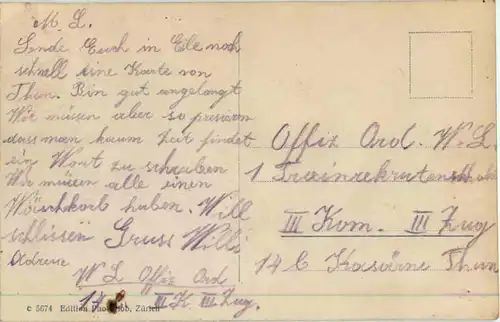 M. L.
Sende Euch in Eile noch
schnell eine Karte von
Thun. Bin gut angelangt
Wir müsen aber so presieren
dass man kaum Zeit findet
ein Wort zu schreiben
Wir müsen alle einen
Wäschkorb haben. Will
schlissen Gruss Willi
Adresse
W L Offiz Ord
14 III K III Zug.
Offiz Ord. W. L
1 Trainrekrutenschule
III Kom. III Zug
14 C Kaserne Thun
c 5674 Edition Photoglob, Zürich